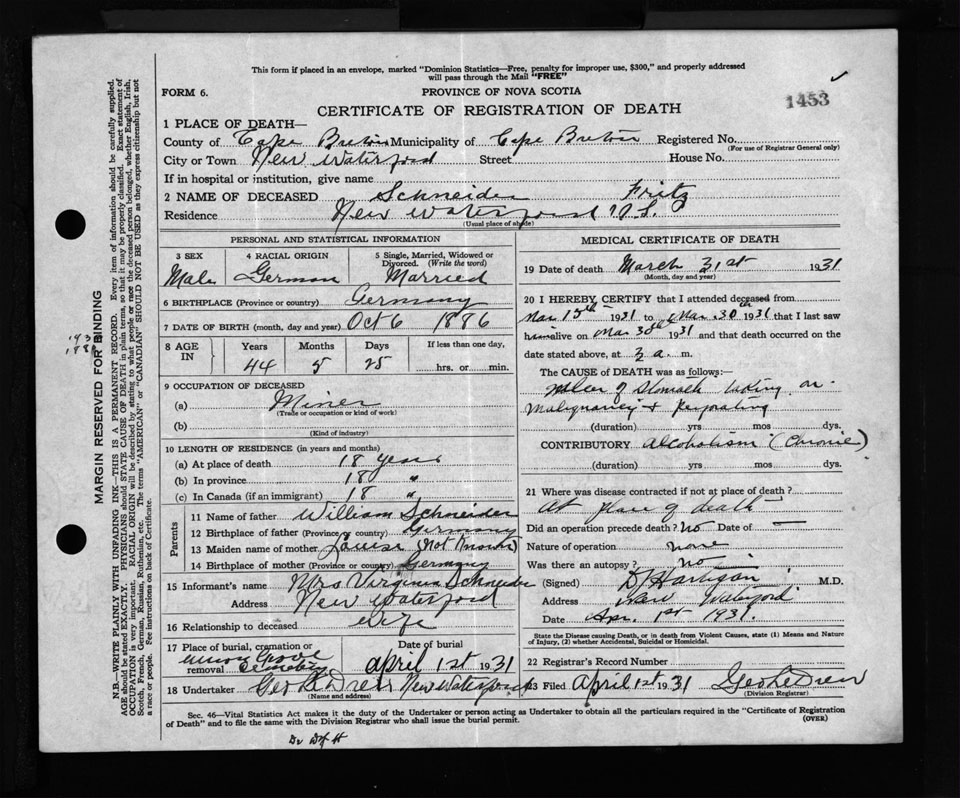 This form if placed in an envelope, marked "Dominion Statistics—Free, penalty for improper use, $300," and properly addressed
will pass through the Mail "FREE"
FORM 6.
PROVINCE OF NOVA SCOTIA
1453
CERTIFICATE OF REGISTRATION OF DEATH
1 PLACE OF DEATH—
County of Cape Breton Municipality of Cape Breton Registered No.
(For use of Registrar General only)
City or Town New Waterford Street House No.
If in hospital or institution, give name
2 NAME OF DECEASED Schneider Fritz
Residence New Waterford N.S.
(Usual place of abode)
PERSONAL AND STATISTICAL INFORMATION
3 SEX 4 RACIAL ORIGIN 5 Single, Married, Widowed or
Divorced. (Write the word)
Male German Married
6 BIRTHPLACE (Province or country) Germany
7 DATE OF BIRTH (month, day and year) Oct 6 1886
8 AGE IN Years Months Days If less than one day,
44 5 25 hrs. or min.
9 OCCUPATION OF DECEASED
(a) Miner
(Trade or occupation or kind of work)
(b)
(Kind of industry)
10 LENGTH OF RESIDENCE (in years and months)
(a) At place of death 18 years
(b) In province 18 "
(c) In Canada (if an immigrant) 18 "
Parents
11 Name of father William Schneider
12 Birthplace of father (Province or country) Germany
13 Maiden name of mother Louise (Not Known)
14 Birthplace of mother (Province or country) Germany
15 Informant's name Mrs Virginia Schneider
Address New Waterford
16 Relationship to deceased Wife
17 Place of burial, cremation or removal Date of burial
Union Grove
Cemetery April 1st 1931
18 Undertaker Geo LeDrew New Waterford
(Name and address)
MEDICAL CERTIFICATE OF DEATH
19 Date of death March 31st 1931
(Month, day and year)
20 I HEREBY CERTIFY that I attended deceased from
Mar. 15th 1931 to Mar. 30th 1931 that I last saw
him alive on Mar 30th 1931 and that death occurred on the
date stated above, at 3 a. m.
The CAUSE OF DEATH was as follows:—
Ulcer of Stomach taking on
Malignancy & Perforating
(duration) yrs mos dys.
CONTRIBUTORY Alcoholism (Chronic)
(duration) yrs mos dys.
21 Where was disease contracted if not at place of death?
At place of death
Did an operation precede death? No Date of —
Nature of operation none
Was there an autopsy? no
(Signed) D Hartigan M.D.
Address New Waterford
Date Apr. 1st 1931.
State the Disease causing Death, or in death from Violent Causes, state (1) Means and Nature
of Injury, (2) whether Accidental, Suicidal or Homicidal.
22 Registrar's Record Number
23 Filed April 1st 1931 Geo LeDrew
(Division Registrar)
Sec. 46—Vital Statistics Act makes it the duty of the Undertaker or person acting as Undertaker to obtain all the particulars required in the "Certificate of Registration
of Death" and to file the same with the Division Registrar who shall issue the burial permit. (OVER)
MARGIN RESERVED FOR BINDING
N.B.—WRITE PLAINLY WITH UNFADING INK—THIS IS A PERMANENT RECORD. Every item of information should be carefully supplied.
AGE should be stated EXACTLY. PHYSICIANS should STATE CAUSE OF DEATH in plain terms, so that it may be properly classified. Exact statement of
OCCUPATION is very important. RACIAL ORIGIN will be described by stating to what people or race the deceased person belonged, whether English, Irish,
Scotch, French, German, Russian, Ruthenian, etc. The terms "AMERICAN" or "CANADIAN" SHOULD NOT BE USED as they express citizenship but not
a race or people. See instructions on back of Certificate.